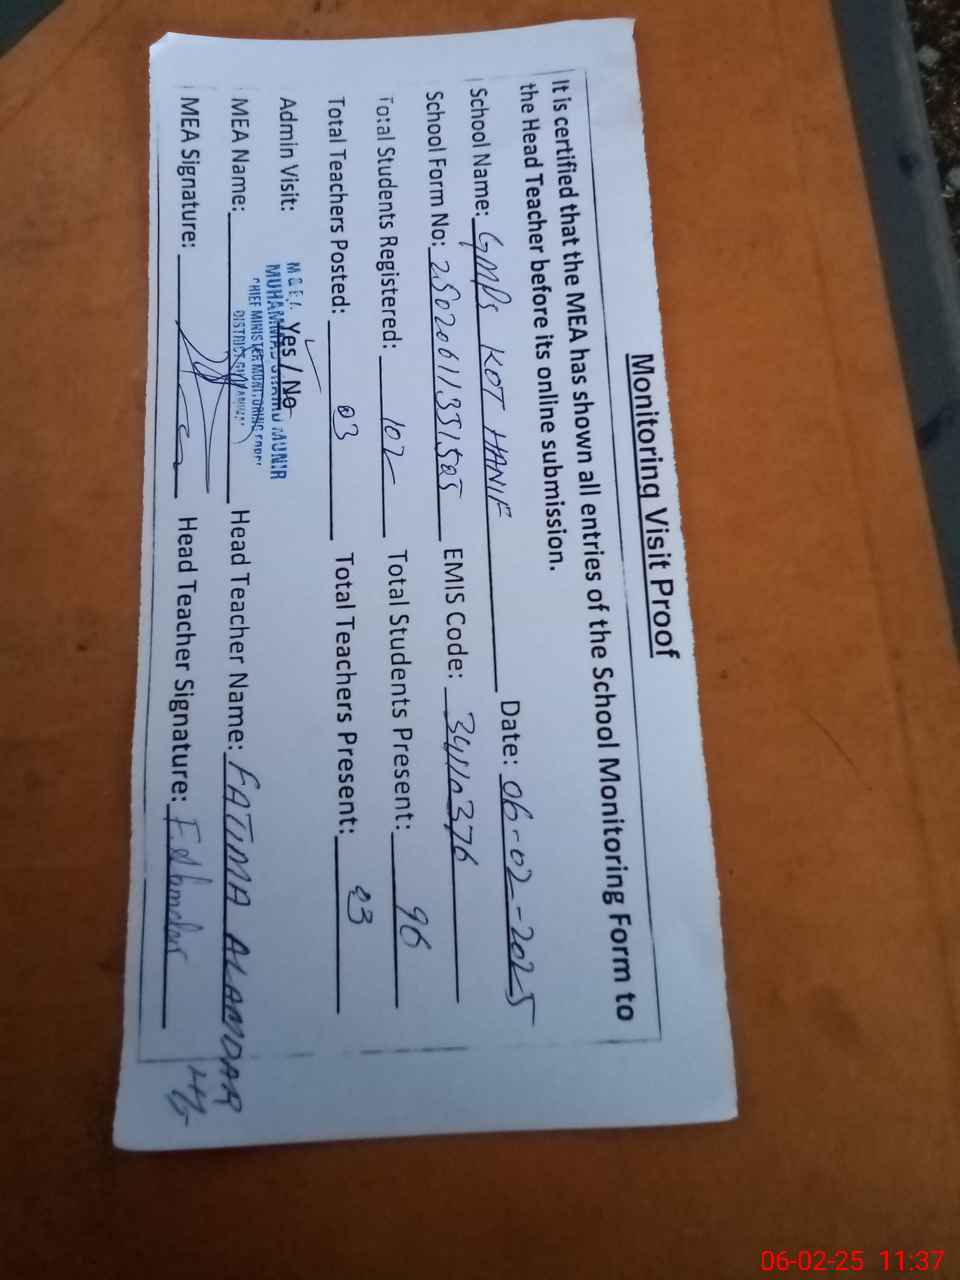 Monitoring Visit Proof
It is certified that the MEA has shown all entries of the School Monitoring Form to
the Head Teacher before its online submission.
School Name: GMPS KOT HANIF Date: 06-02-2025
School Form No: EMIS Code: 34110376
Total Students Registered: 102 Total Students Present: 96
Total Teachers Posted: 03 Total Teachers Present: 03
Admin Visit: Yes / No
MUHAMMAD MUNIR
CHIEF MINISTER MONITORING FORCE
DISTRICT
MEA Name: Head Teacher Name: FATIMA ALAMDAR
MEA Signature: Head Teacher Signature:
06-02-25 11:37